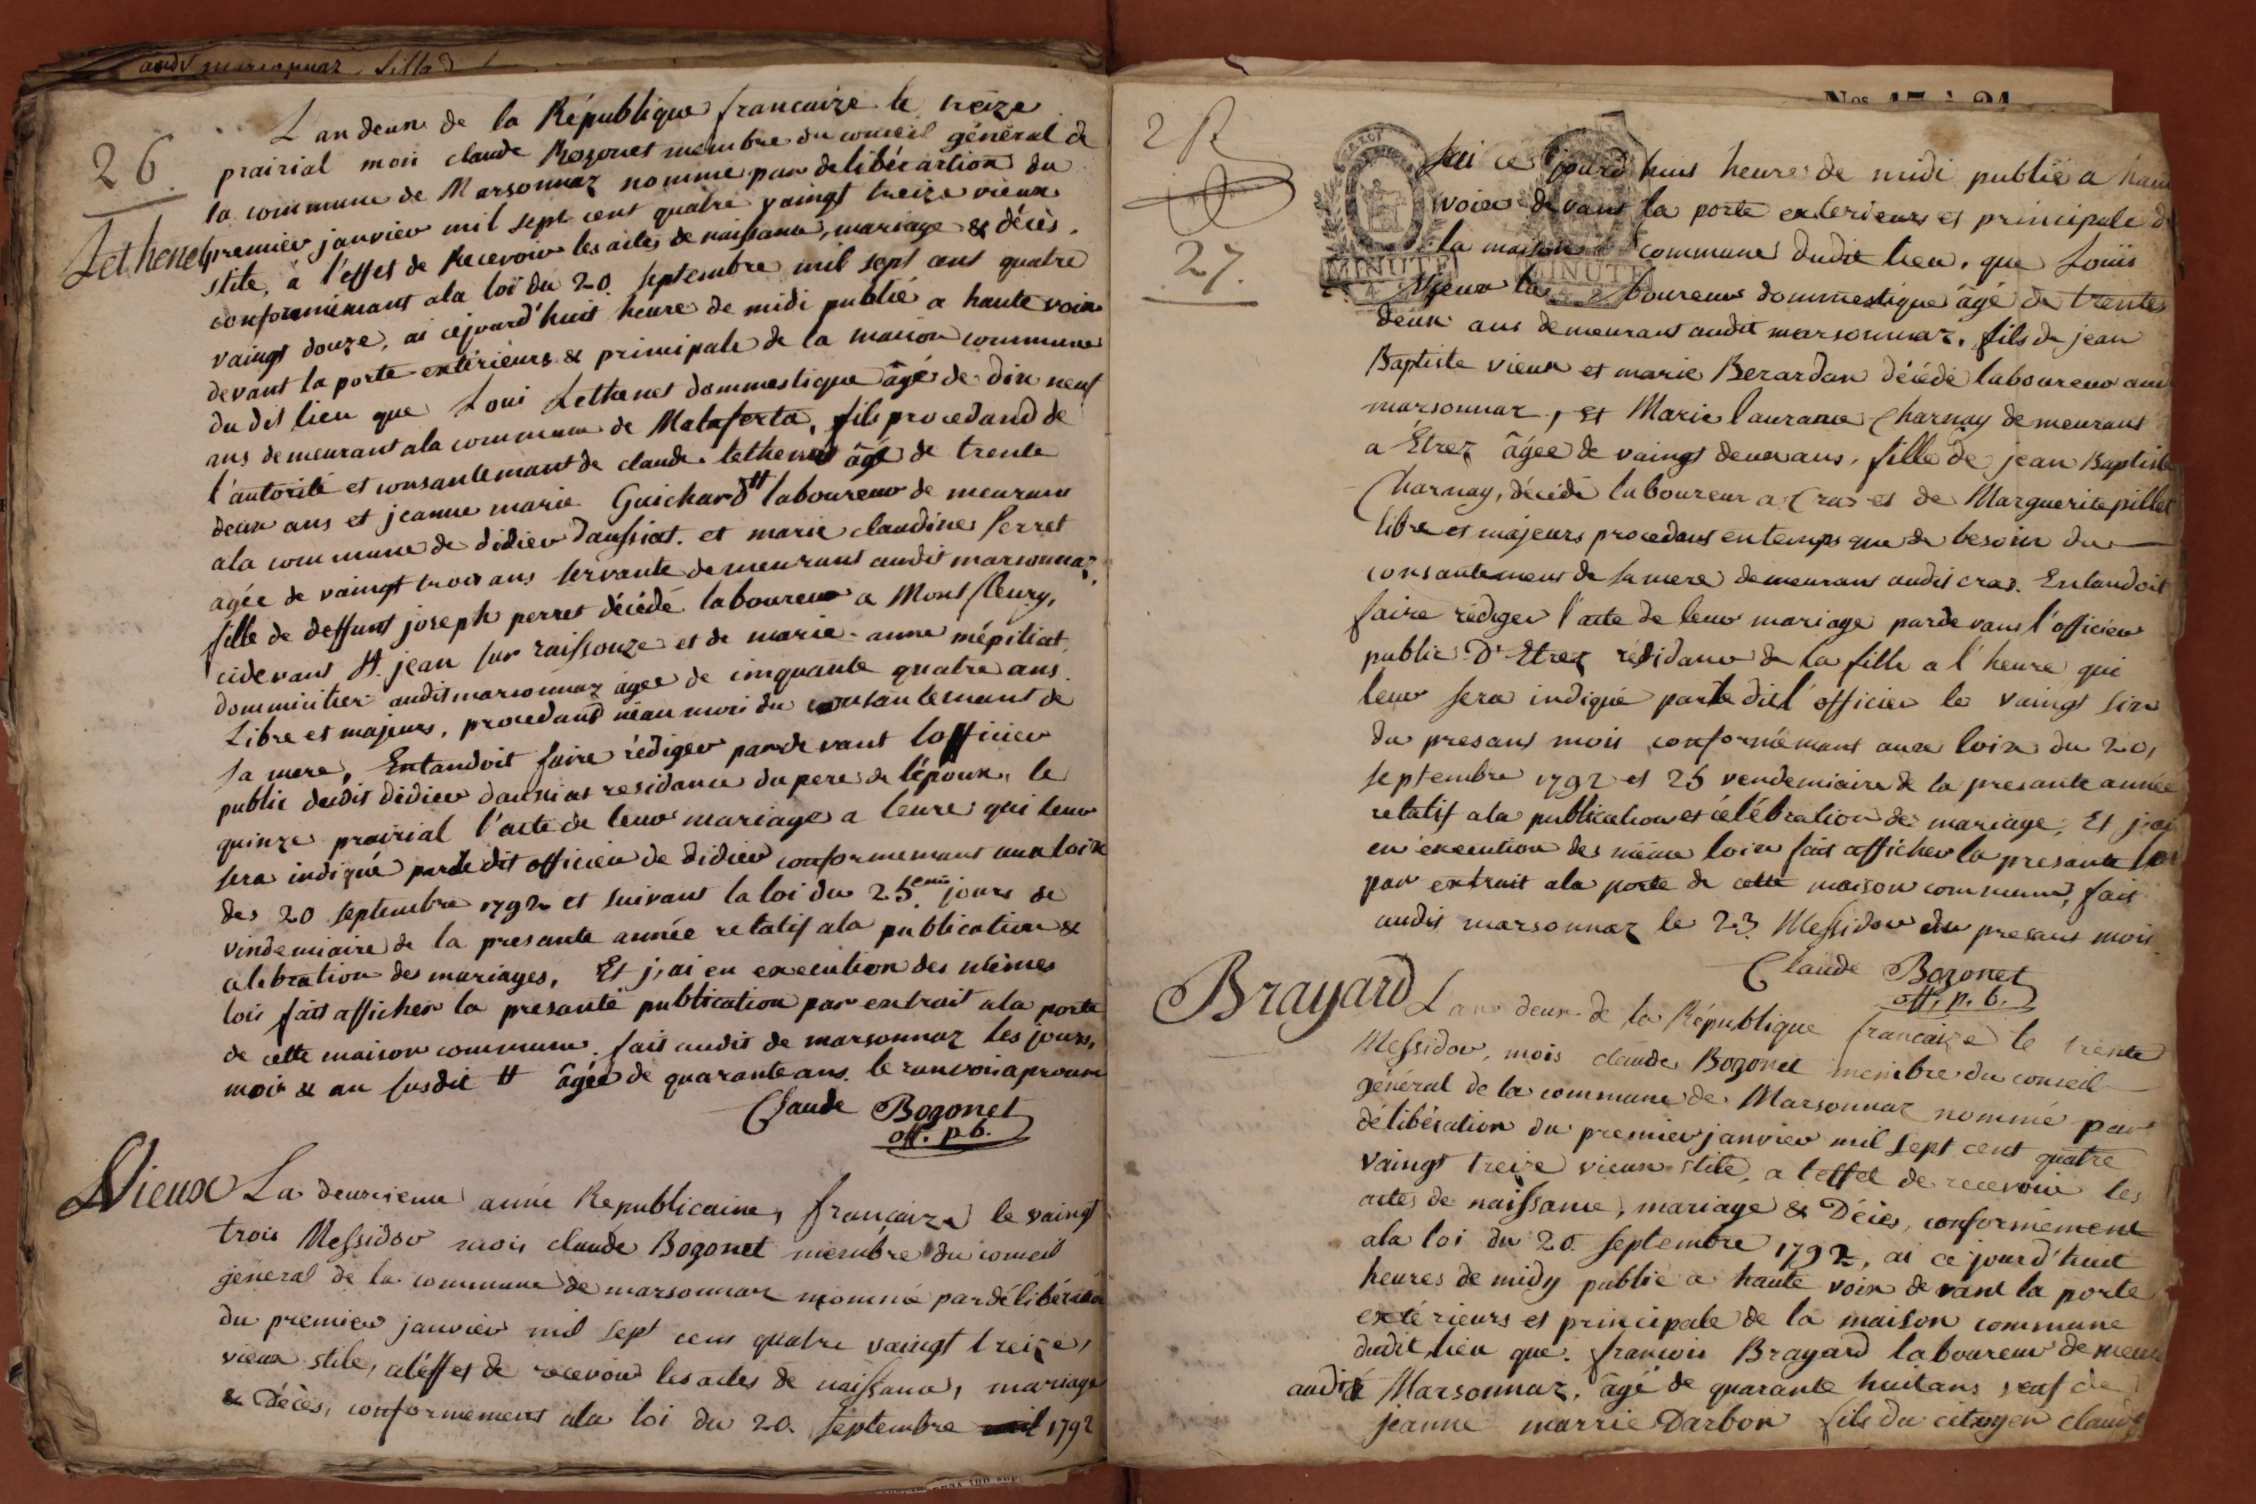 26.
L'an deux de la République francaize le treize
prairial moii claude Bozonet membre du conseil général de
la commune de Marsonnaz nommé par delibécartion du
Lethenet premier janvier mil sept cent quatre vaingt treize vieux
stile, a l'effet de Recevoir les actes de naissance, mariage & décès.
conformémant ala loï du 20. septembre mil sept cens quatre
vaingt douze, ai cejourd'huit heure de midi publié a haute voix
devant la porte extérieurs & principale de la maison commune
du dit lieu que Loui Lethenet dommestique âgé de dix neuf
ans demeurant ala commune de Malaferta, fils procedand de
l'autorité et consantemant de claude lethenet âgé de trente
deux ans et jeanne marie Guichard # laboureur de meurant
ala commune de didier daussiat. et marie claudine Perret
agée de vaingt trois ans servante demeurant audit marsonnaz,
fille de deffunt joseph perret décédé laboureur a Mont fleury,
cidevant St. jean sur raissouze et de marie-anne mépiliat
domminitier audit marsonnaz agee de cinquante quatre ans.
Libre et majeurs, procedand néanmoii du consantemant de
sa mere, Entandoit faire rédiger pardevant lofficier
public dudit didier daussiat residance du pere de l'époux, le
quinze prairial l'acte de leur mariage a leure qui leur
sera indiqué parle dit officier de didier conformemant aux loix
des 20 septembre 1792 et suivant la loi du 25.eme jours de
vindemiaire de la presante année relatif ala publication &
celebration des mariages, Et j,ai en execution des mêmes
loii fait afficher la presante publication par extrait ala porte
de cette maison commune. fait audit de marsonnaz les jours,
moii & an susdit # âgée de quarante ans. le ranvoii aprouvé
Claude Bozonet
off. p b.
Vieux La deuxieme année Republicaine, françaize le vaingt
trois Messidor mois claude Bozonet membre du conseil
général de la commune de marsonnaz nommé par délibération
du premier janvier mil sept cens quatre vaingt treize,
vieux stile, aleffet de recevoir les actes de naissance, mariage
& Décès, conformement ala loi du 20. septembre 1792
27.
Jai ce jourd huis heure de midi publié a haute
voix devant la porte exterieurs et principale de
la maison commune dudit lieu, que Louïs
Vieux laboureur dommestique âgé de trente
deux ans demeurant audit marsonnaz, fils de jean
Baptiste vieux et marie Berardan décédé laboureur aud
marsonnaz, et Marie laurance Charnay demeurant
a Étrez âgée de vaingt deux ans, fille de jean Baptiste
Charnay, décédé laboureur a Cras et de Marguerite pillet
libre et majeurs procedans entemps que de besoin du
consantement de sa mere demeurans audit cras. Entandoit
faire rédiger l'acte de leur mariage pardevant l'officier
public D'Etrez résidance de la fille a l'heure qui
leur sera indiqué parle dit l'officier le vaingt six
du presant mois conformémant aux loix du 20,
septembre 1792 et 25 vendemiaire de la presante année
relatif ala publication et célébration de mariage, Et j'ai
en éxecution des même loix fait afficher la presante
par extrait ala porte de cette maison commune, fait
audit marsonnaz le 23 Messidor du presant mois
Claude Bozonet
off. p. b.
Brayard L an deux de la République francaize le trente
Messidor, mois claude Bozonet membre du conseil
général de la commune de Marsonnaz nommé par
délibération du premier janvier mil sept cent quatre
vaingt treize vieux stile, a l'effet de recevoir les
actes de naissance, mariage & Décès, conformément
ala loi du 20. septembre 1792, ai ce jourd'huit
heures de midy publié a haute voix devant la porte
extérieurs et principale de la maison commune
dudit lieu que. francois Brayard laboureur demeu
audit Marsonnaz, âgé de quarante huit ans veuf de
jeanne marrie Darbon fils du citoyen claude
MINUTE
MINUTE